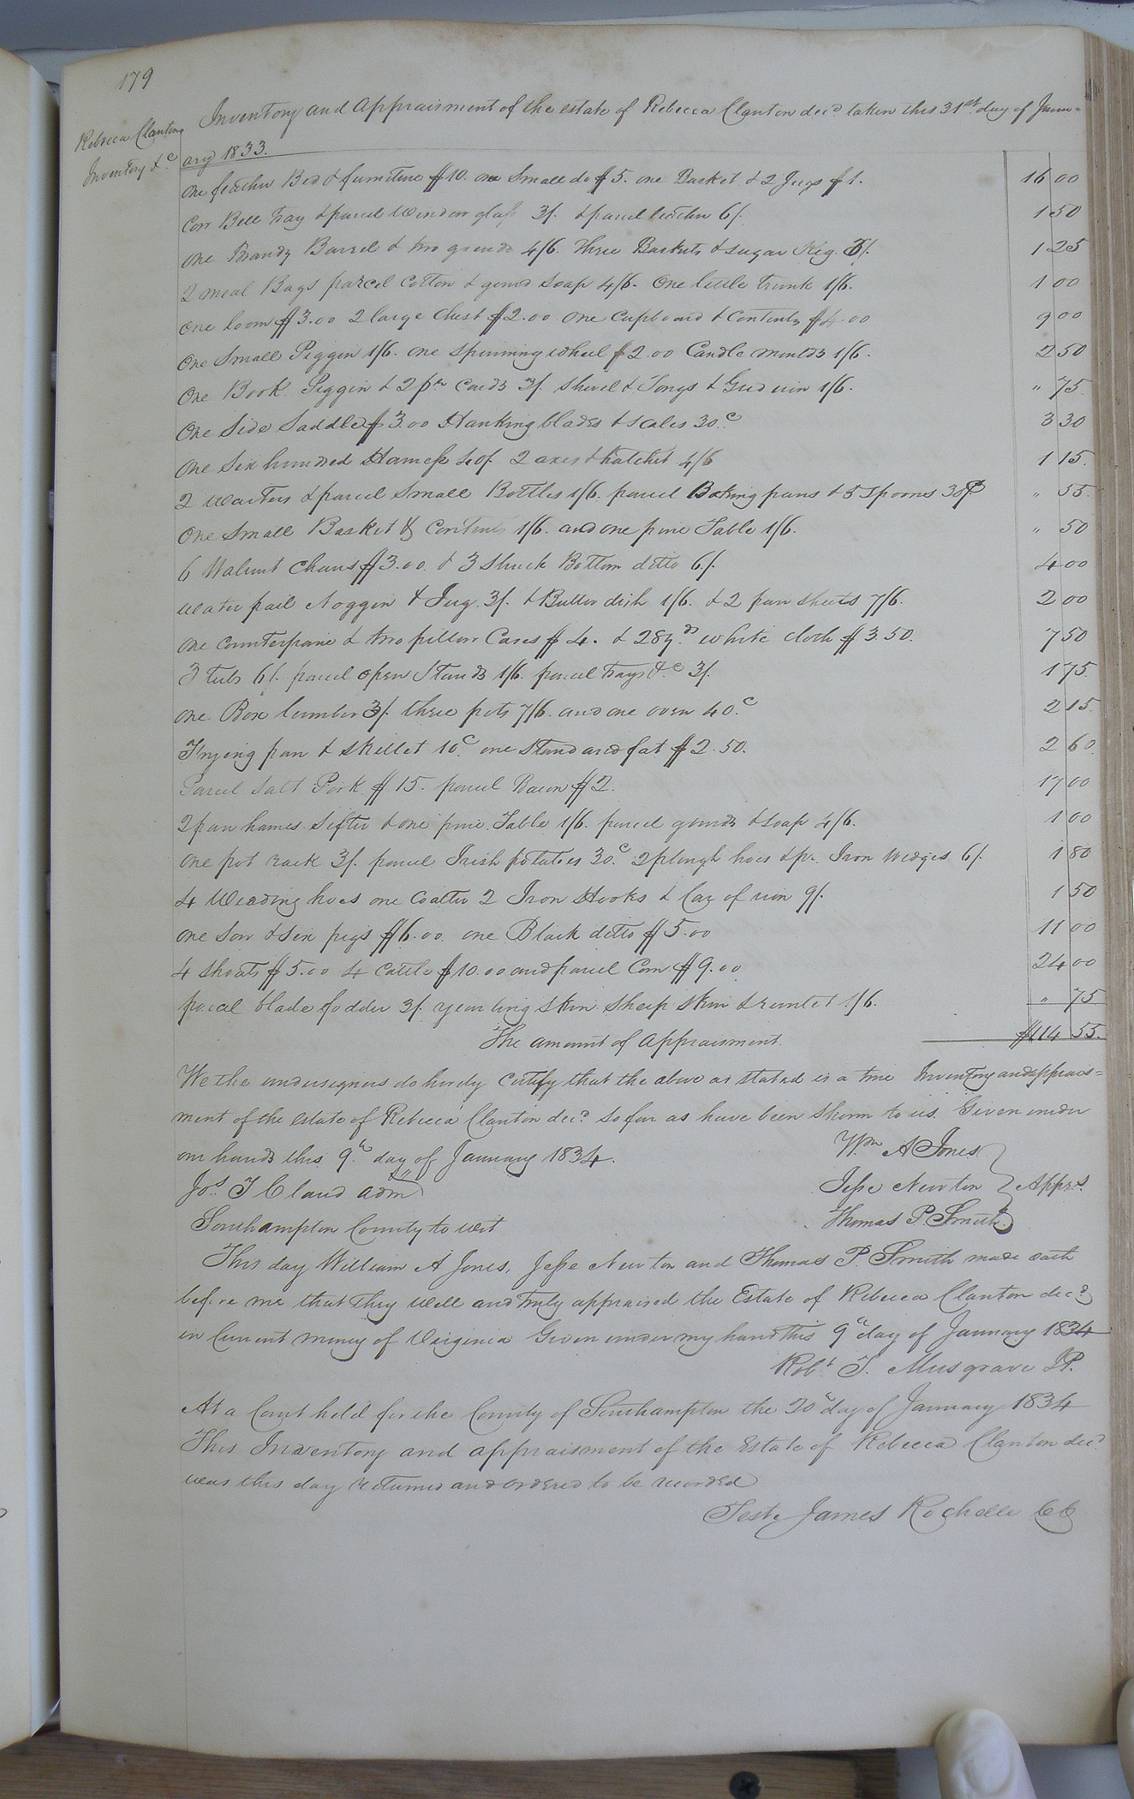 179
Rebecca Clanton
Inventory &c
Inventory and Appraisment of the estate of Rebecca Clanton decd taken this 31st day of Janu=
ary 1833.
One feather Bed & furniture $10. one Small do $5. one Basket & 2 Jugs $1. 16 00
Corn Bell Tray & parcel window glass 3/. & parcel leather 6/. 1 50
One Brandy Barrel & two gourds 4/6. three Baskets & sugar Keg 3/. 1 25
2 meal Bags parcel Cotton & gourd soap 4/6. One little trunk 1/6. 1 00
One Loom $3.00 2 large Chest $2.00 One Cupboard & Contents $4.00 9 00
One Small Piggin 1/6. one Spinning wheel $2.00 Candle moulds 1/6. 2 50
One Book Piggin & 2 pr Cards 3/. Shovel & Tongs & 1/6. " 75
One Side Saddle $3.00 Hanking blades & scales 30.c 3 30
One Six hundred Harness 2 axes & hatchet 4/6 1 15.
2 waiters & parcel Small Bottles 1/6. parcel Baking pans & 5 Spoons 30c " 55
One Small Basket & Contents 1/6. and one pine Table 1/6. " 50
6 Walnut Chairs $3.00. & 3 Shuck Bottom ditto 6/. 4 00
Water pail Noggin & Jug. 3/. & Butter dish 1/6. & 2 pair sheets 7/6. 2 00
One Counterpane & two pillow Cases $4. & 28 yds white cloth $3.50. 7 50
3 Tubs 6/. parcel open Stands 1/6. parcel trays &c 3/. 1 75
one Box lumber 3/. three pots 7/6. and one oven 40.c 2 15
Frying pan & skillet 10c one Stand and fat $2.50. 2 60
Parcel Salt Pork $15. parcel Bacon $2. 17 00
2 pair hames Sifter & one pine Table 1/6. parcel gourds & soap 4/6. 1 00
One pot rack 3/. parcel Irish potatoes 30.c 2 plough hoes & pr. Iron wedges 6/. 1 80
4 Weeding hoes one Coalter 2 Iron Hooks & of iron 9/. 1 50
one Sow & six pigs $6.00. one Black ditto $5.00 11 00
4 Shoats $5.00 4 Cattle $10.00 and parcel Corn $9.00 24 00
parcel blade fodder 3/. yearling skin Sheep skin & 1/6. " 75
The amount of appraisment $114 55.
We the undersigners do hereby Certify that the above as stated is a true Inventory and appraes=
ment of the estate of Rebecca Clanton decd. so far as have been shown to us. Given under
our hands this 9th day of January 1834.
Wm A Jones
Jos T Claud adm
Jesse Newton Apprs.
Southampton County to wit
Thomas P Smith
This day William A Jones, Jesse Newton and Thomas P. Smith made oath
before me that they well and truly appraised the Estate of Rebecca Clanton decd.
in Current money of Virginia Given under my hand this 9th day of January 1834
Robt T. Musgrave JP.
At a Court held for the County of Southampton the 20th day of January 1834
This Inventory and appraisment of the Estate of Rebecca Clanton decd
was this day returned and ordered to be recorded
Teste James Rochelle CC